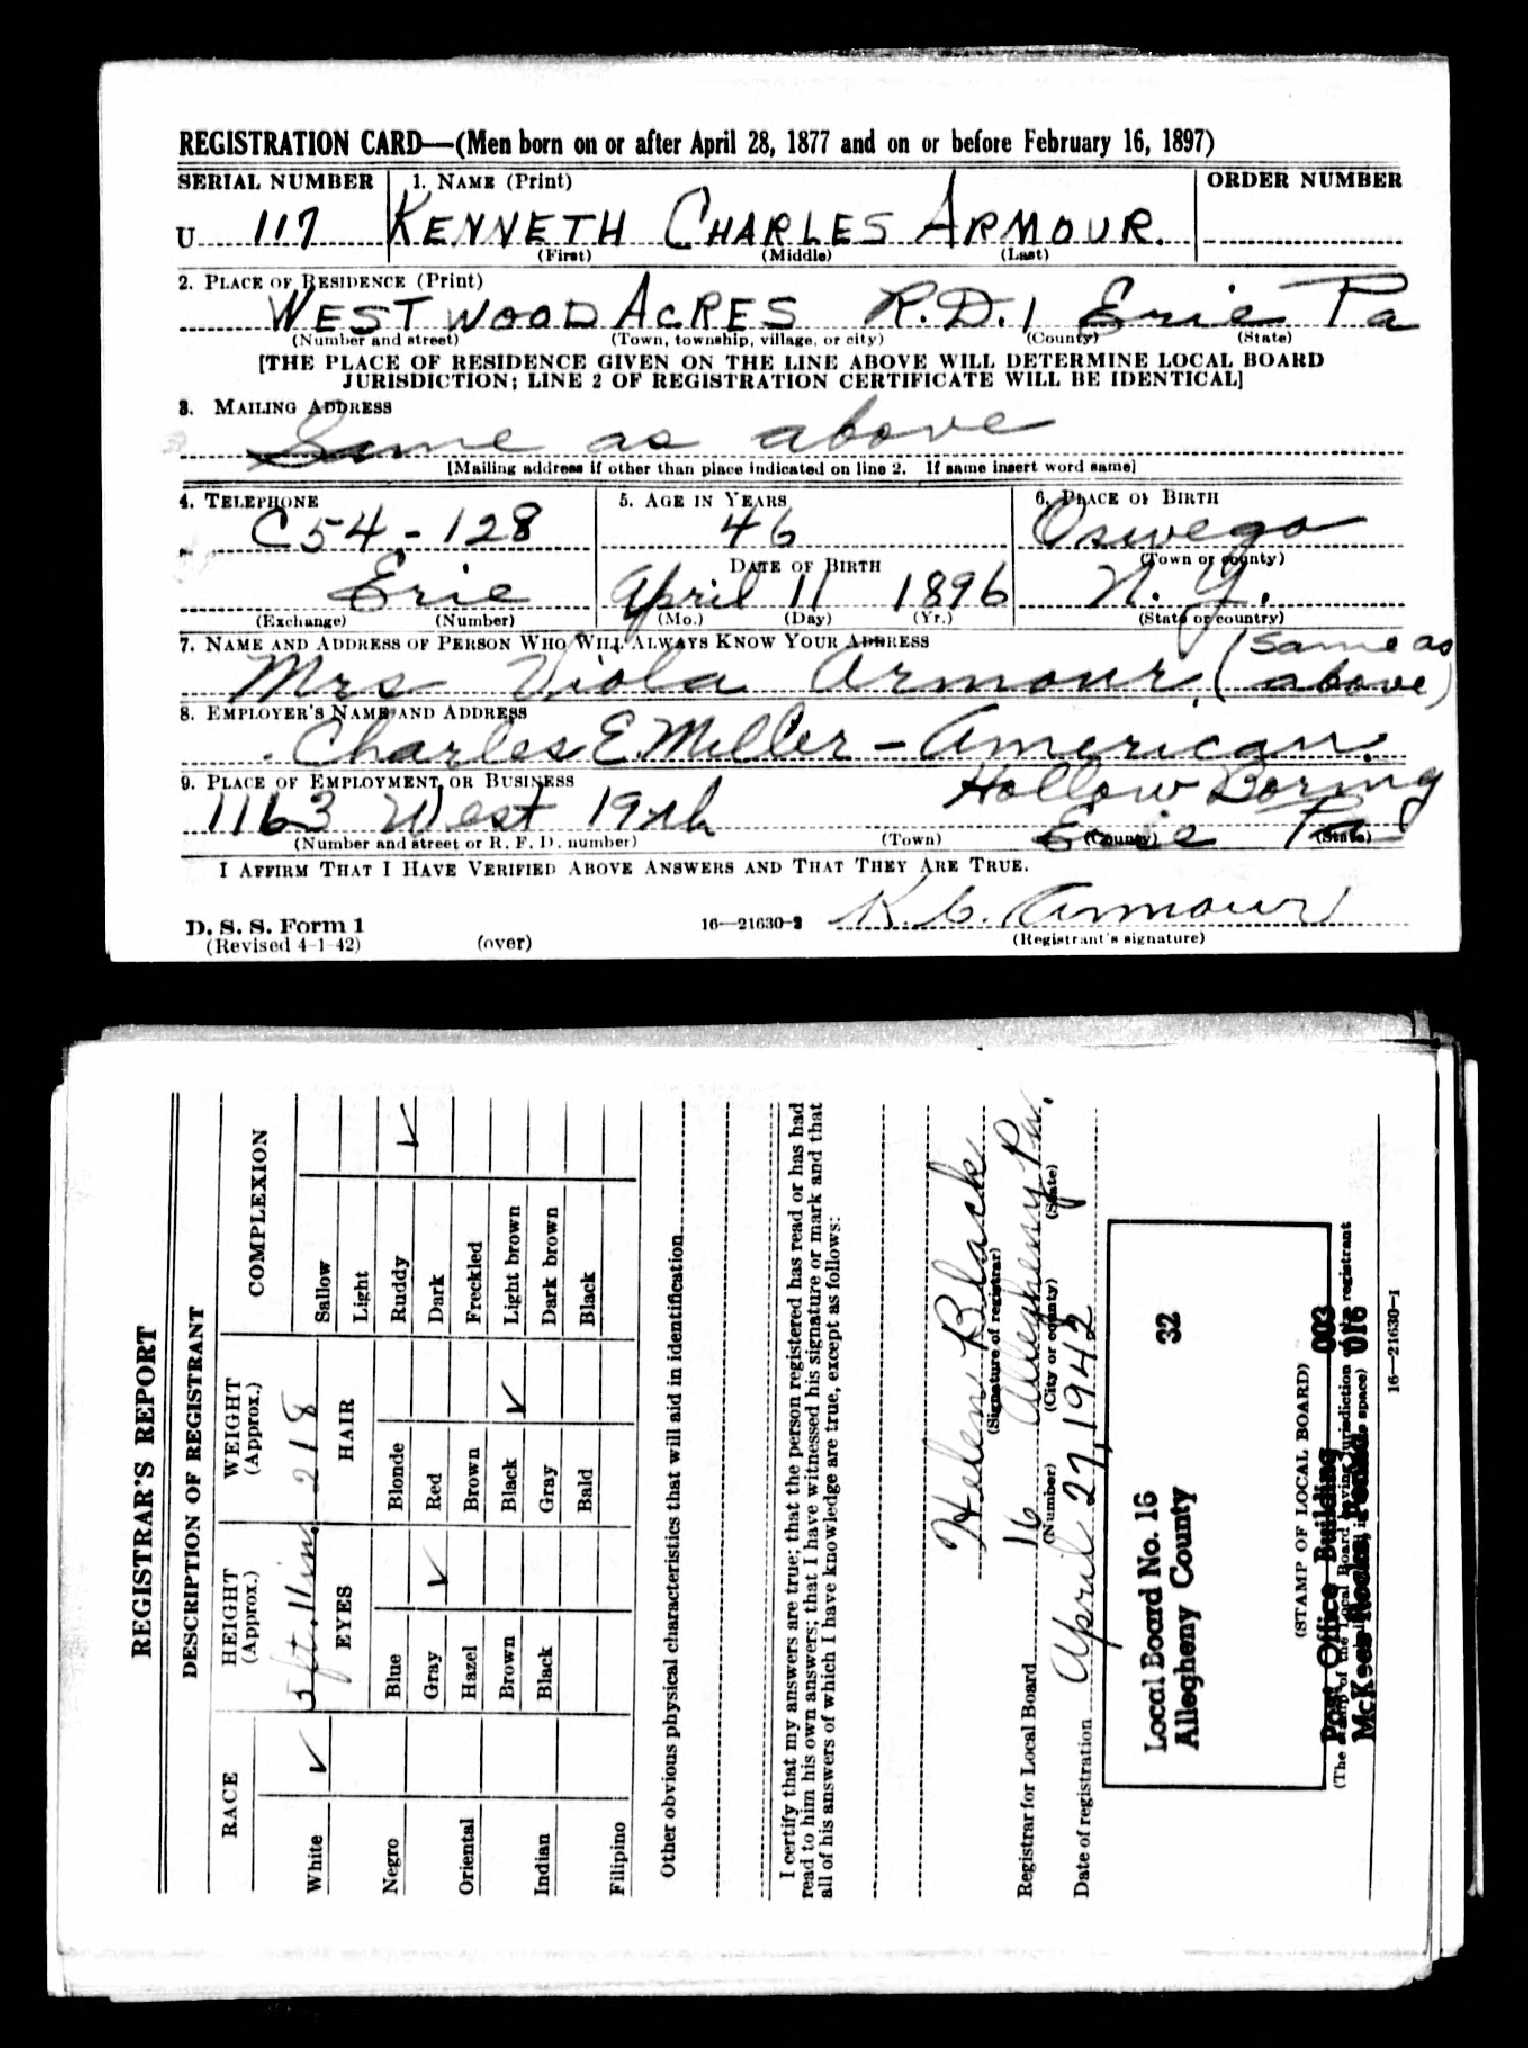 REGISTRATION CARD—(Men born on or after April 28, 1877 and on or before February 16, 1897)
SERIAL NUMBER 1. NAME (Print) ORDER NUMBER
U 117 KENNETH CHARLES ARMOUR.
(First) (Middle) (Last)
2. PLACE OF RESIDENCE (Print)
WESTWOOD ACRES R.D.1 Erie Pa
(Number and street) (Town, township, village, or city) (County) (State)
[THE PLACE OF RESIDENCE GIVEN ON THE LINE ABOVE WILL DETERMINE LOCAL BOARD
JURISDICTION; LINE 2 OF REGISTRATION CERTIFICATE WILL BE IDENTICAL]
3. MAILING ADDRESS
Same as above
[Mailing address if other than place indicated on line 2. If same insert word same]
4. TELEPHONE 5. AGE IN YEARS 6. PLACE OF BIRTH
C54-128 46 Oswego
DATE OF BIRTH (Town or county)
Erie April 11 1896 N.Y.
(Exchange) (Number) (Mo.) (Day) (Yr.) (State or country)
7. NAME AND ADDRESS OF PERSON WHO WILL ALWAYS KNOW YOUR ADDRESS
Mrs Viola Armour, (same as above)
8. EMPLOYER'S NAME AND ADDRESS
Charles E. Miller - American
9. PLACE OF EMPLOYMENT OR BUSINESS Hollow Boring
1163 West 19th Erie Pa
(Number and street or R. F. D. number) (Town) (County) (State)
I AFFIRM THAT I HAVE VERIFIED ABOVE ANSWERS AND THAT THEY ARE TRUE.
K. C. Armour
D. S. S. Form 1
(Revised 4-1-42) (over) 16—21630-2 (Registrant's signature)
REGISTRAR'S REPORT
DESCRIPTION OF REGISTRANT
RACE HEIGHT (Approx.) WEIGHT (Approx.) COMPLEXION
White ✓ 5 ft. 11 in. 218 Sallow
EYES HAIR Light
Negro Blue Blonde Ruddy ✓
Gray ✓ Red Dark
Oriental Hazel Brown Freckled
Brown Black ✓ Light brown
Indian Black Gray Dark brown
Bald Black
Filipino
Other obvious physical characteristics that will aid in identification
I certify that my answers are true; that the person registered has read or has had
read to him his own answers; that I have witnessed his signature or mark and that
all of his answers of which I have knowledge are true, except as follows:
Helen Black
(Signature of registrar)
Registrar for Local Board 16 Allegheny Pa.
(Number) (City or county) (State)
Date of registration April 27, 1942
Local Board No. 16 32
Allegheny County
(STAMP OF LOCAL BOARD)
Post Office Building 003
McKees Rocks, Penna. 016
(The stamp of the Local Board having jurisdiction of the registrant
space)
16—21630-1